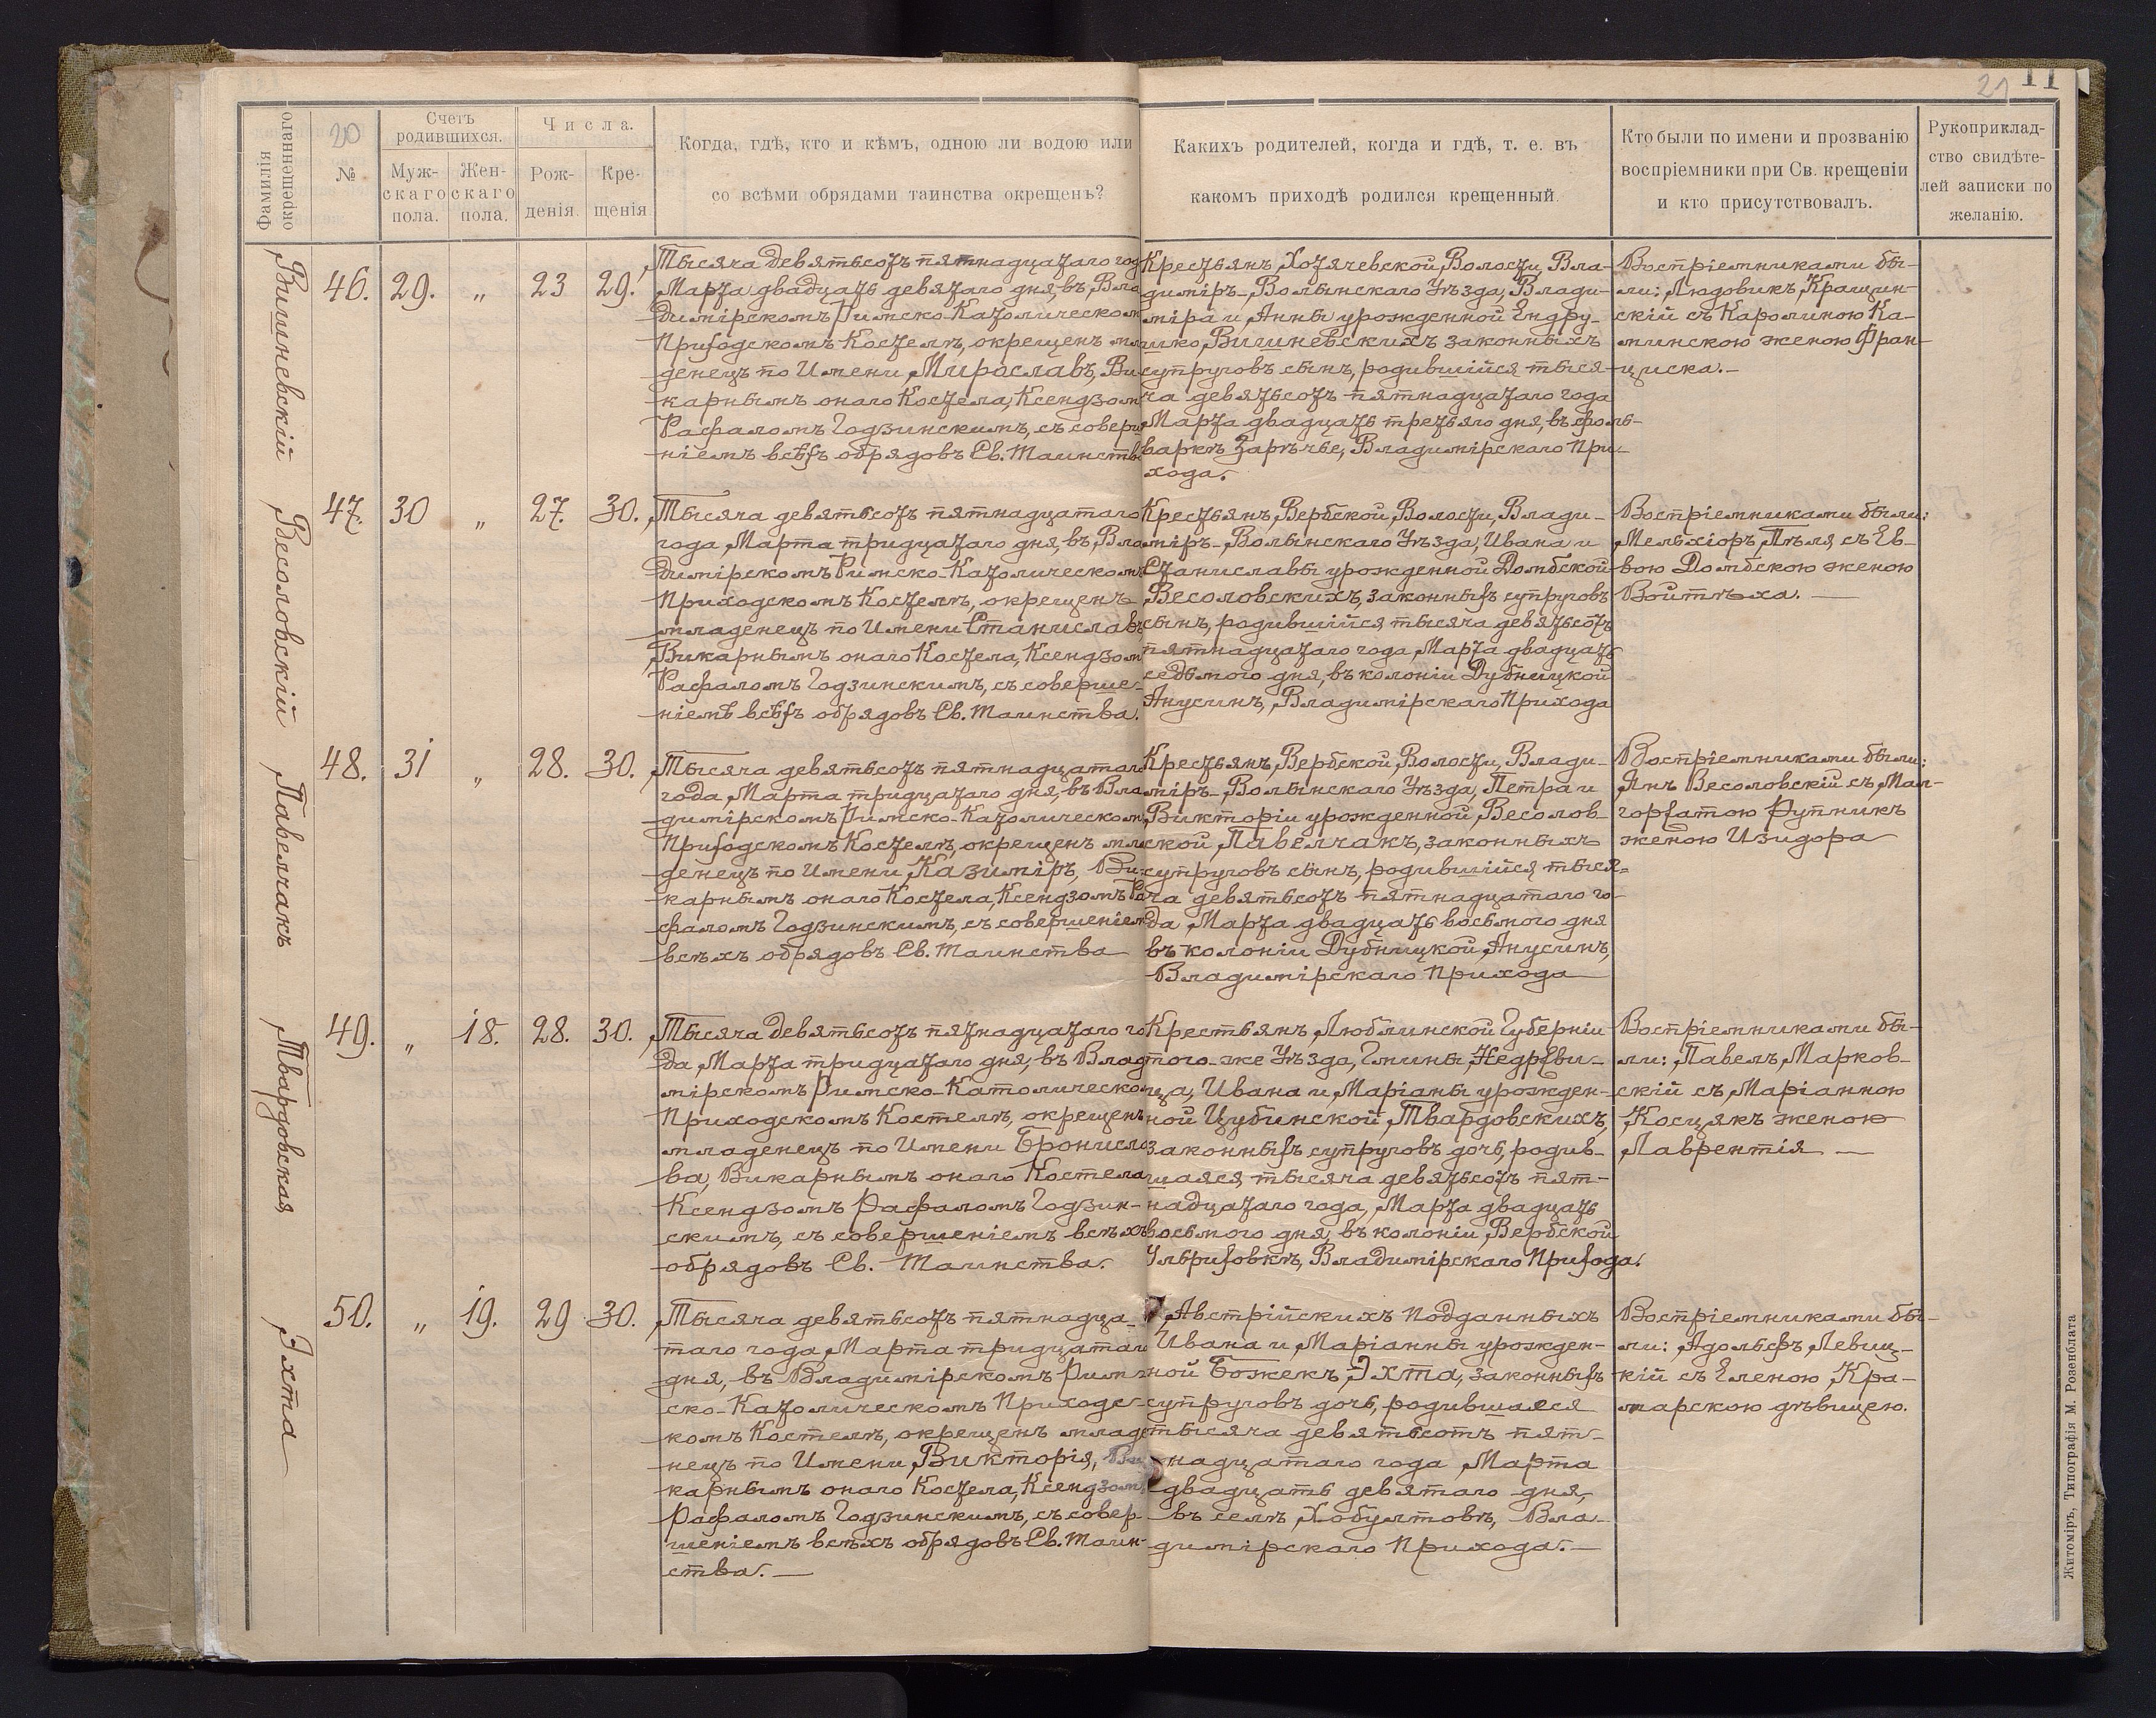 21 11
Фамилія окрещеннаго
20
№
Счетъ родившихся.
Муж-
скаго
пола.
Жен-
скаго
пола.
Числа.
Рож-
денія.
Кре-
щенія
Когда, гдѣ, кто и кѣмъ, одною ли водою или
со всѣми обрядами таинства окрещенъ?
Какихъ родителей, когда и гдѣ, т. е. въ
какомъ приходѣ родился крещенный.
Кто были по имени и прозванію
воспріемники при Св. крещеніи
и кто присутствовалъ.
Рукоприклад-
ство свидѣте-
лей записки по
желанію.
Вишневскій
46. 29. „ 23 29.
Тысяча девятьсотъ пятнадцатаго год
Марта двадцать девятаго дня, въ Вла
димірскомъ Римско-Католическом
Приходскомъ Костелѣ, окрещенъ мла
денецъ по Имени Мирославъ, Ви-
карнымъ онаго Костела, Ксендзом
Рафаломъ Годзинскимъ, съ соверше
ніемъ всѣхъ обрядовъ Св. Таинства
Крестьянъ, Хотячевской, Волости, Вла-
диміръ-Волынскаго Уѣзда, Влади-
міра и Анны урожденной Ендру-
шко, Вишневскихъ законныхъ
супруговъ сынъ, родившійся тыся-
ча девятьсотъ пятнадцатаго года
Марта двадцать третьяго дня, въ фоль-
варкѣ Зарѣчье, Владимірскаго При-
хода.
Воспріемниками бы-
ли: Людовикъ Кращин-
скій съ Каролиною Ка-
минскою женою Фран-
циска.-
Весоловскій
47. 30 „ 27. 30.
Тысяча девятьсотъ пятнадцатаго
года, Марта тридцатаго дня, въ Вла
димірскомъ Римско-Католическомъ
Приходскомъ Костелѣ, окрещенъ
младенецъ по Имени Станиславъ
Викарнымъ онаго Костела, Ксендзом
Рафаломъ Годзинскимъ, съ соверше-
ніемъ всѣхъ обрядовъ Св. Таинства.
Крестьянъ, Вербской, Волости, Влади-
міръ-Волынскаго Уѣзда, Ивана и
Станиславы урожденной Домбской
Весоловскихъ, законныхъ супруговъ
сынъ, родившійся тысяча девятьсотъ
пятнадцатаго года, Марта двадцать
седьмого дня, въ колоніи Дубницкой
Анусинъ, Владимірскаго Прихода
Воспріемниками были:
Мельхіоръ Пѣля, съ Ев-
вою Домбскою женою
Войтѣха. —
Павелчакъ
48. 31 „ 28. 30.
Тысяча девятьсотъ пятнадцатаго
года, Марта тридцатаго дня, въ Вла
димірскомъ Римско-Католическом
Приходскомъ Костелѣ, окрещенъ мла
денецъ по Имени Казиміръ, Ви-
карнымъ онаго Костела, Ксендзомъ Ра
фаломъ Годзинскимъ, съ совершеніем
всѣхъ обрядовъ Св. Таинства
Крестьянъ, Вербской, Волости, Влади-
міръ-Волынскаго Уѣзда, Петра и
Викторіи урожденной, Весолов-
ской, Павелчакъ, законныхъ
супруговъ сынъ, родившійся тыся-
ча девятьсотъ пятнадцатаго го-
да, Марта двадцать восьмого дня
въ колоніи Дубницкой, Анусинъ,
Владимірскаго Прихода
Воспріемниками были:
Янъ Весоловскій съ, Мал-
горжатою Рутникъ
женою Изидора
Твардовская
49. „ 18. 28. 30.
Тысяча девятьсотъ пятнадцатаго го
да, Марта тридцатаго дня, въ Влад
мірскомъ Римско-Католическом
Приходскомъ Костелѣ, окрещенъ
младенецъ по Имени Бронисла
ва, Викарнымъ онаго Костела
Ксендзомъ Рафаломъ Годзин-
скимъ, съ совершеніемъ всѣхъ
обрядовъ Св. Таинства.
Крестьянъ, Люблинской Губерніи
того-же Уѣзда, Гмины,
ца, Ивана и Маріанны урожден-
ной Цубинской, Твардовскихъ,
законныхъ супруговъ дочь, родив-
шаяся тысяча девятьсотъ пят-
надцатаго года, Марта двадцать
восьмого дня, въ колоніи, Вербской
Ульриховкѣ, Владимірскаго Прихода.
Воспріемниками бы-
ли: Павелъ, Марков-
скій съ Маріанною
Косцякъ женою
Лаврентія —
Эхта
50. „ 19. 29 30.
Тысяча девятьсотъ пятнадца-
таго года, Марта тридцатаго
дня, въ Владимірскомъ Римъ-
ско-Католическомъ Приходс-
комъ Костелѣ, окрещенъ младе
нецъ по Имени Викторія, Ви
карнымъ онаго Костела, Ксендзом,
Рафаломъ Годзинскимъ, съ совер-
шеніемъ всѣхъ обрядовъ Св. Таин-
ства. —
Австрійскихъ Подданныхъ
Ивана и Маріанны урожден-
ной Божекъ, Эхта, законныхъ
супруговъ дочь, родившаяся
тысяча девятьсотъ пят-
надцатаго года Марта
двадцать девятаго дня,
въ селѣ, Хобултовѣ, Вла-
димірскаго Прихода. —
Воспріемниками бы-
ли: Адольфъ Левиц-
кій съ Еленою, Кра-
марскою дѣвицею.
Житоміръ, Типографія М. Розенблата